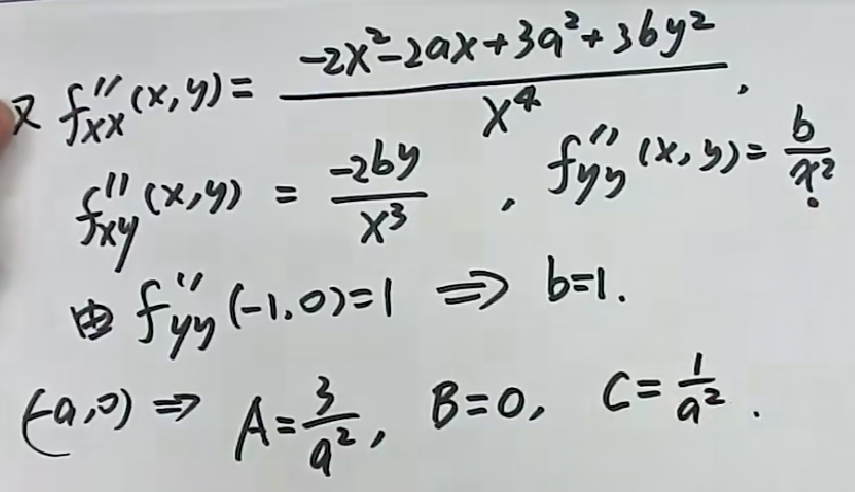 又 f''xx(x,y) = (-2x²-2ax+3a²+3by²)/x⁴ .
f''xy(x,y) = -2by/x³ , f''yy(x,y) = b/x²
由 f''yy(-1,0)=1 ⇒ b=1.
(-a,0) ⇒ A=3/a², B=0, C=1/a² .